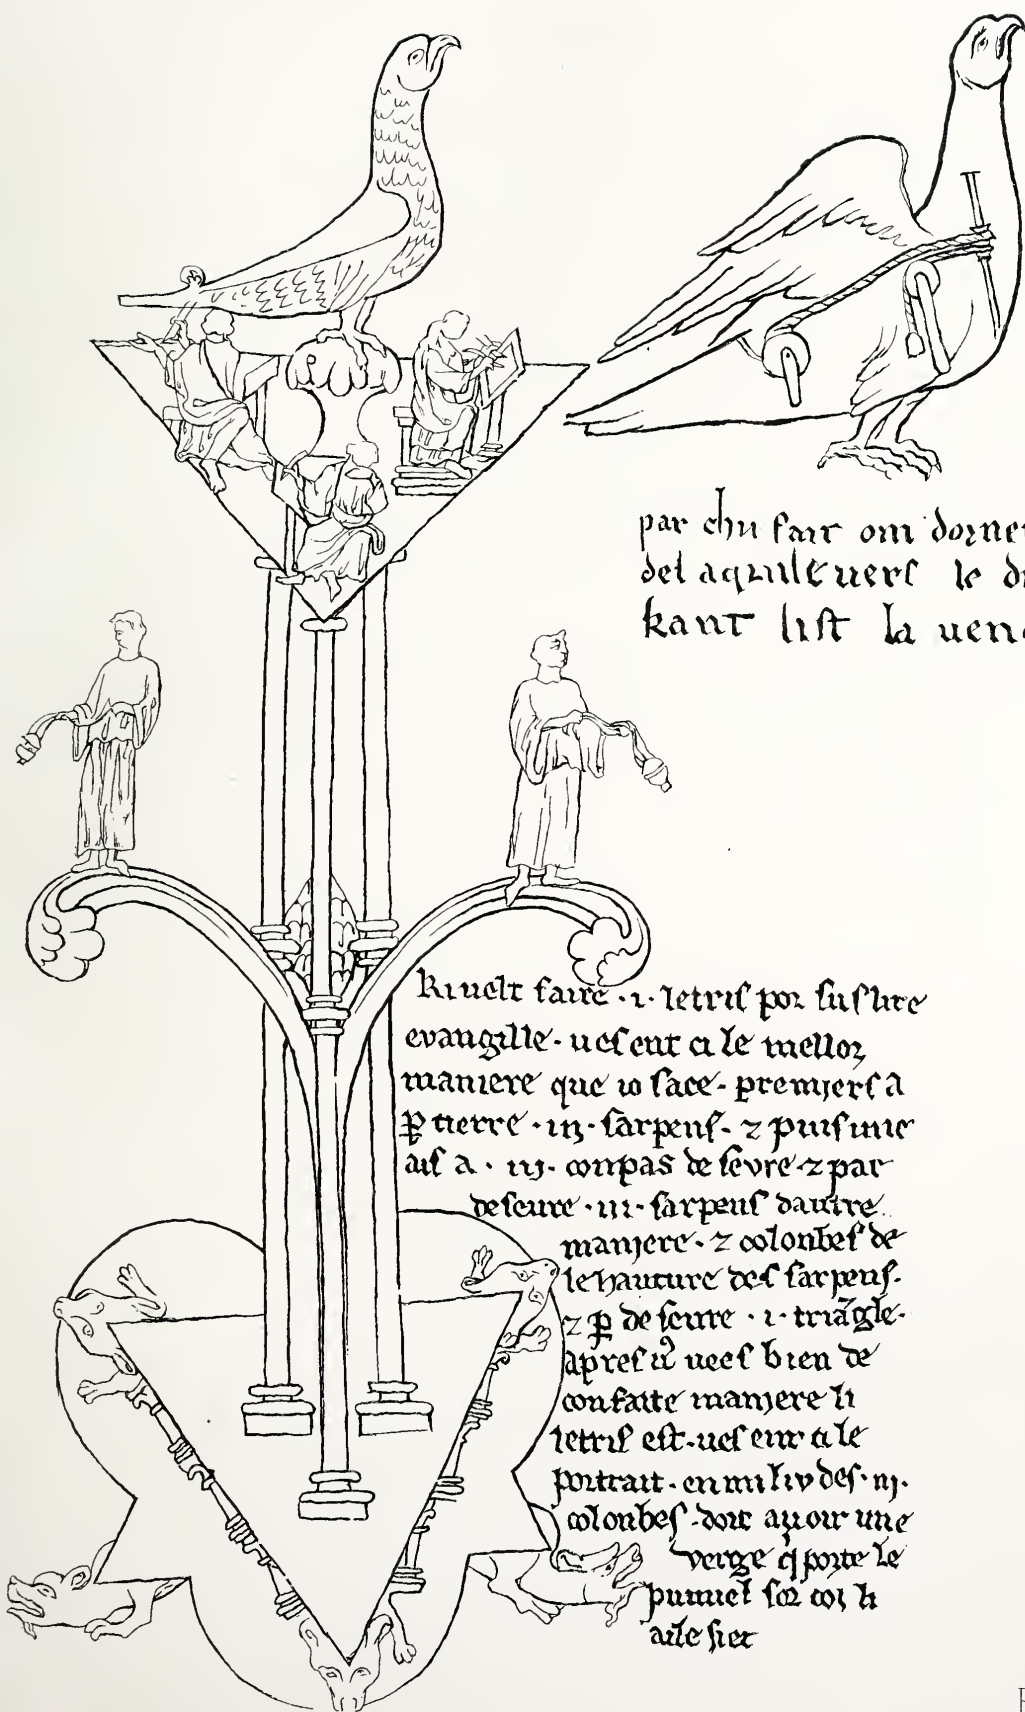 par chu fait om
del aquile vers le
kant list la
Ki velt faire · i · letris por sus lire
evangille · ves ent ci le mellor
maniere que io sace · premiers a
ꝑ tierre · iij · sarpens · ⁊ puis une
ais a · iij · conpas de sevre · ⁊ par
deseure · iij · sarpens dautre
maniere · ⁊ colonbes de
le hauture des sarpens ·
⁊ ꝑ de seure · i · triãgle ·
apres vees bien de
confaite maniere li
letris est · ves ent ci le
portrait · en miliv des · iij ·
colonbes · doit avoir une
verge q̇ porte le
pumiel sor coi li
aile siet